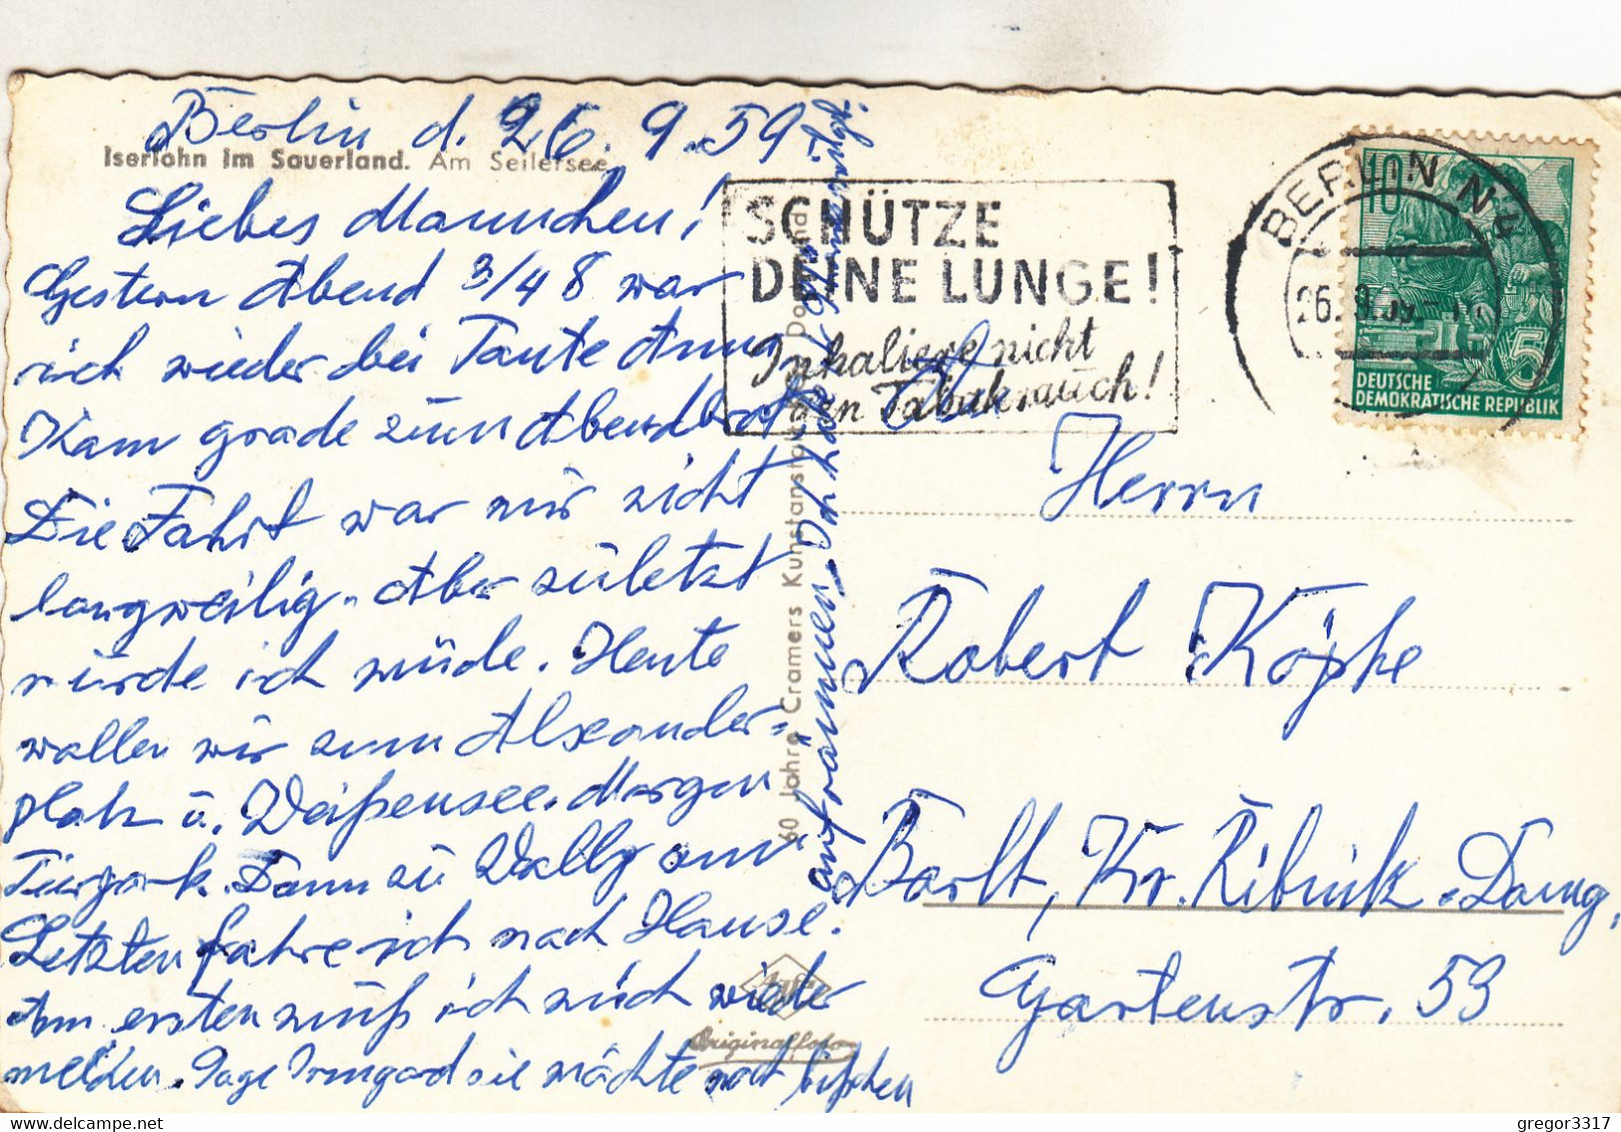 Berlin d. 26. 9. 59
Iserlohn im Sauerland. Am Seilersee
Liebes Mannchen!
Gestern Abend 3/4 8 war
ich wieder bei Tante Anna
Kam grade zum Abendbrot
Die Fahrt war mir nicht
langweilig. Aber zuletzt
wurde ich müde. Heute
wollen wir zum Alexander-
platz u. Weißensee. Morgen
Tierpark. Dann zu Wally am
Letzten fahre ich nach Hause.
Am ersten muß ich mich wieder
melden. Sage Irmgard sie möchte noch bißchen
aufräumen. Ich
60 Jahre Cramers Kunstanstalt, Dortmund
Originalfoto
SCHÜTZE
DEINE LUNGE!
Inhaliere nicht
den Tabakrauch!
BERLIN N4
26.9.59
10
5
DEUTSCHE
DEMOKRATISCHE REPUBLIK
Herrn
Robert Köpke
Barlt, Kr. Ribnitz-Damg,
Gartenstr. 53
gregor3317